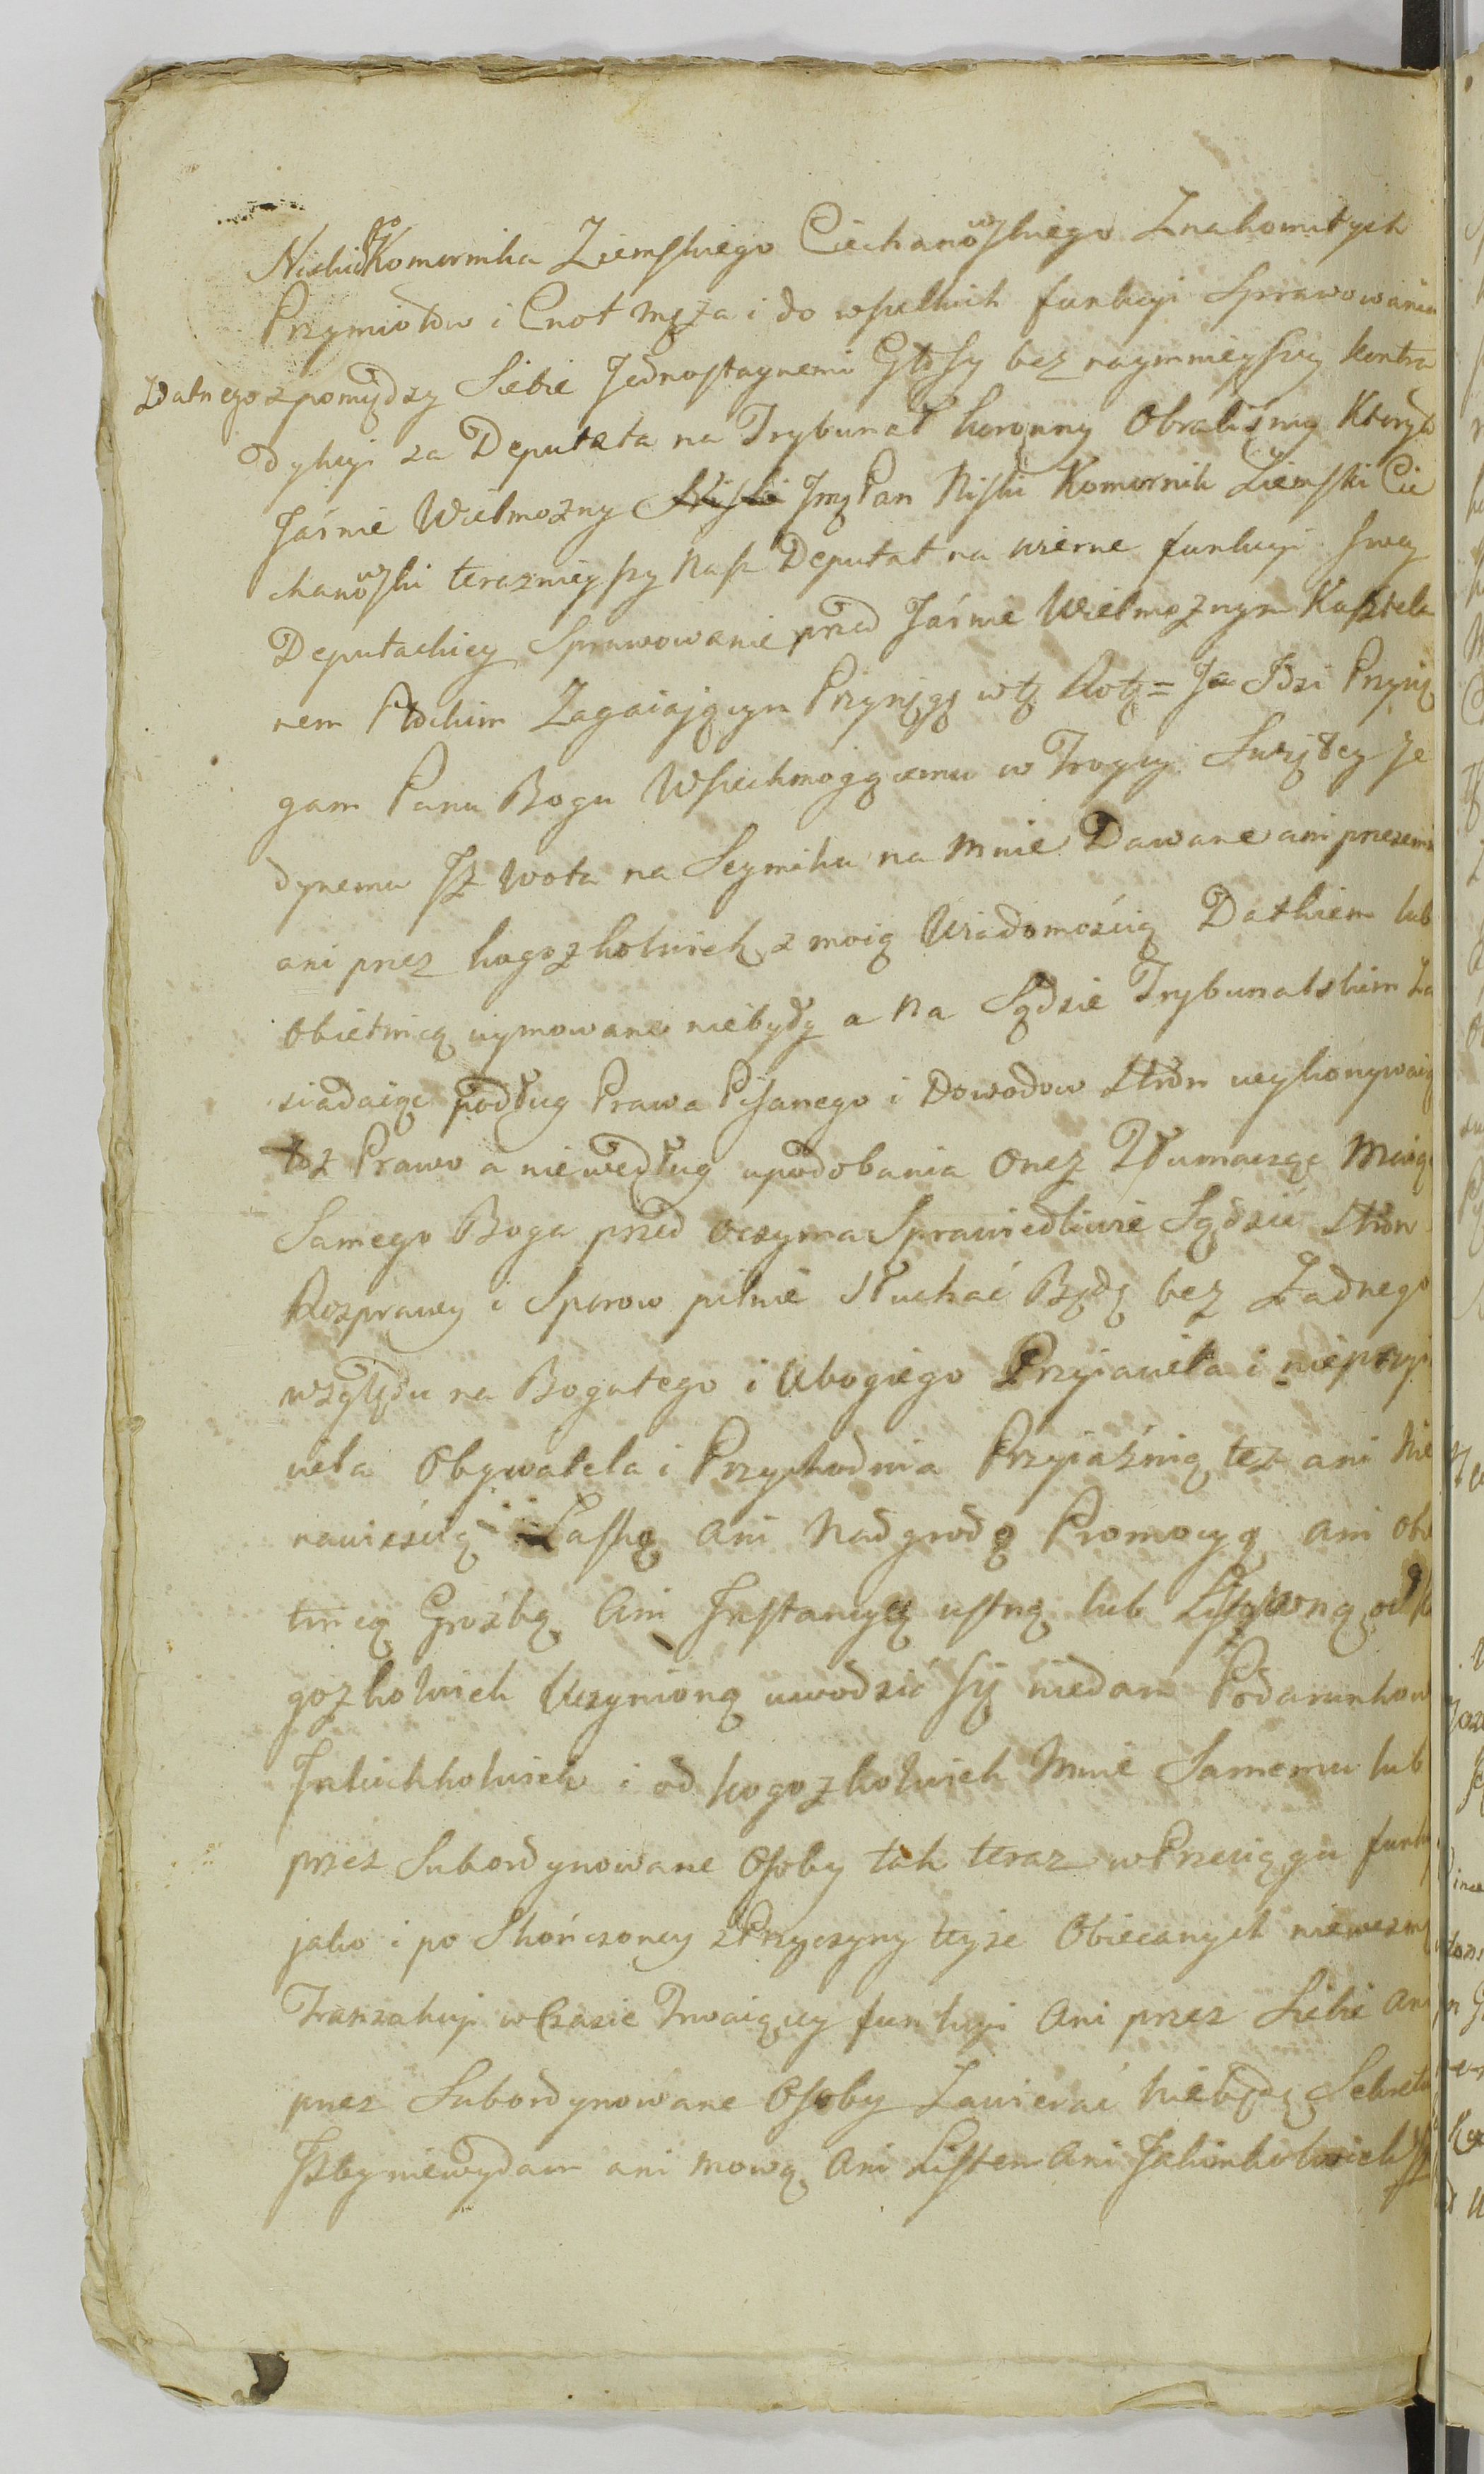 Niskiego Komornika Ziemskiego Ciechanowskiego Znakomitych
Przymiotow i Cnot męża i do wszelkich funkcyi Sprawowania
Zdatnego z pomiędzy Siebie Jednostaynemi Głosy bez naymnieyszey kontra
dykcyi za Deputata na Trybunał koronny Obraliśmy Który to
Jaśnie Wielmozny Niski Jmć Pan Niski Komornik Ziemski Cie
chanowski teraznieyszy Nasz Deputat na wierne funkcyi swey
Deputackiey Sprawowanie przed Jaśnie Wielmożnym Kasztela
nem Płockim Zagaiaiącym Przysięgę w tę Rotę = Ja Jdzi Przysię
gam Panu Bogu Wszechmogącemu w Troycy Swiętey Je
dynemu Jż wota na Seymiku na mnie Dawane ani przezemnie
ani przez kogożkolwiek z moią Wiadomością Datkiem lub
Obietnicą uymowane niebyły a na Sądzie Trybunalskim Za
siadaiąc podług Prawa Pisanego i Dowodow Stron wykonywaią
toż Prawo a niewedług upodobania Onez Tłumacząc Maiąc
Samego Boga przed oczyma Sprawiedliwie Sądzić Stron
Rozprawy i Sporow pilnie Słuchać Będę bez Żadnego
względu na Bogatego i Ubogiego Przyiaciela i nieprzyia
ciela Obywatela i Przychodnia Przyiaźnią tez ani Nie
nawiścią Łaską ani Nadgrodą Promocyą ani obie
tnicą Groźbą Ani Jnstancyą ustną lub Listowną od ko
gożkolwiek Uczynioną uwodzić się niedam Podarunkow
Jakichkolwiek i od kogożkolwiek Mnie Samemu lub
przez Subordynowane Osoby tak teraz w Przeciągu funkcyi
jako i po Skończoney z Przyczyny teyże Obiecanych niewezmę
Tranzakcyi w Czasie Trwaiącey funkcyi Ani przez Siebie Ani
przez Subordynowane Osoby Zawierać Niebędę Sekretu
Jzby niewydam ani mową Ani Listem Ani Jakimkolwiek